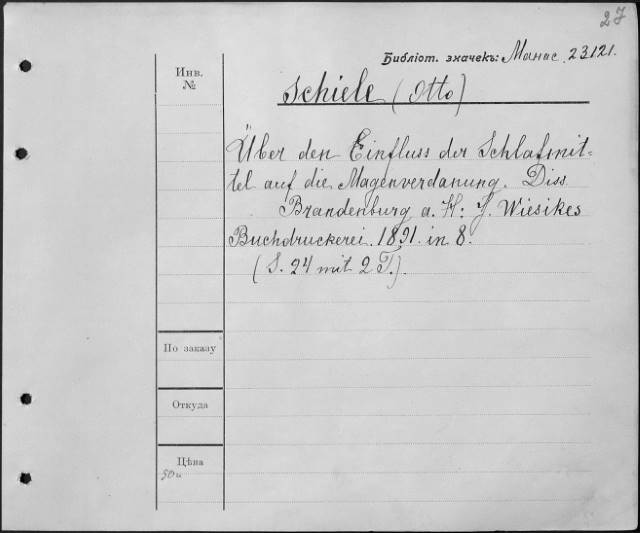 27
Библіот. значекъ: Манас. 23121.
Инв.
№
Schiele (Otto)
Über den Einfluss der Schlafmit-
tel auf die Magenverdanung. Diss.
Brandenburg a. H: J. Wiesikes
Buchdruckerei. 1891. in 8.
(S. 24 mit 2 T.).
По заказу
Откуда
Цѣна
50